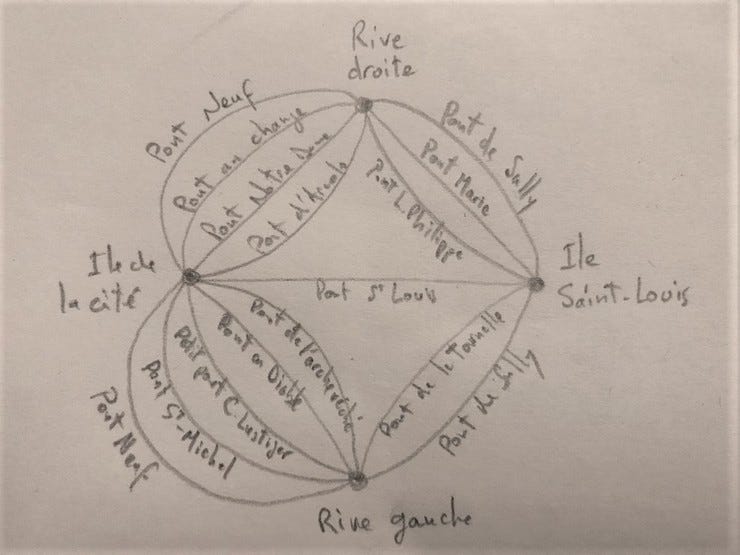 Rive
droite
Pont Neuf
Pont au change
Pont Notre Dame
Pont d'Arcole
Pont de Sully
Pont Marie
Pont L. Philippe
Ile de
la cité
Ile
Saint-Louis
Pont St Louis
Pont de l'archevêché
Pont au Double
Petit pont C. Lustiger
Pont St-Michel
Pont Neuf
Pont de la Tournelle
Pont de Sully
Rive gauche